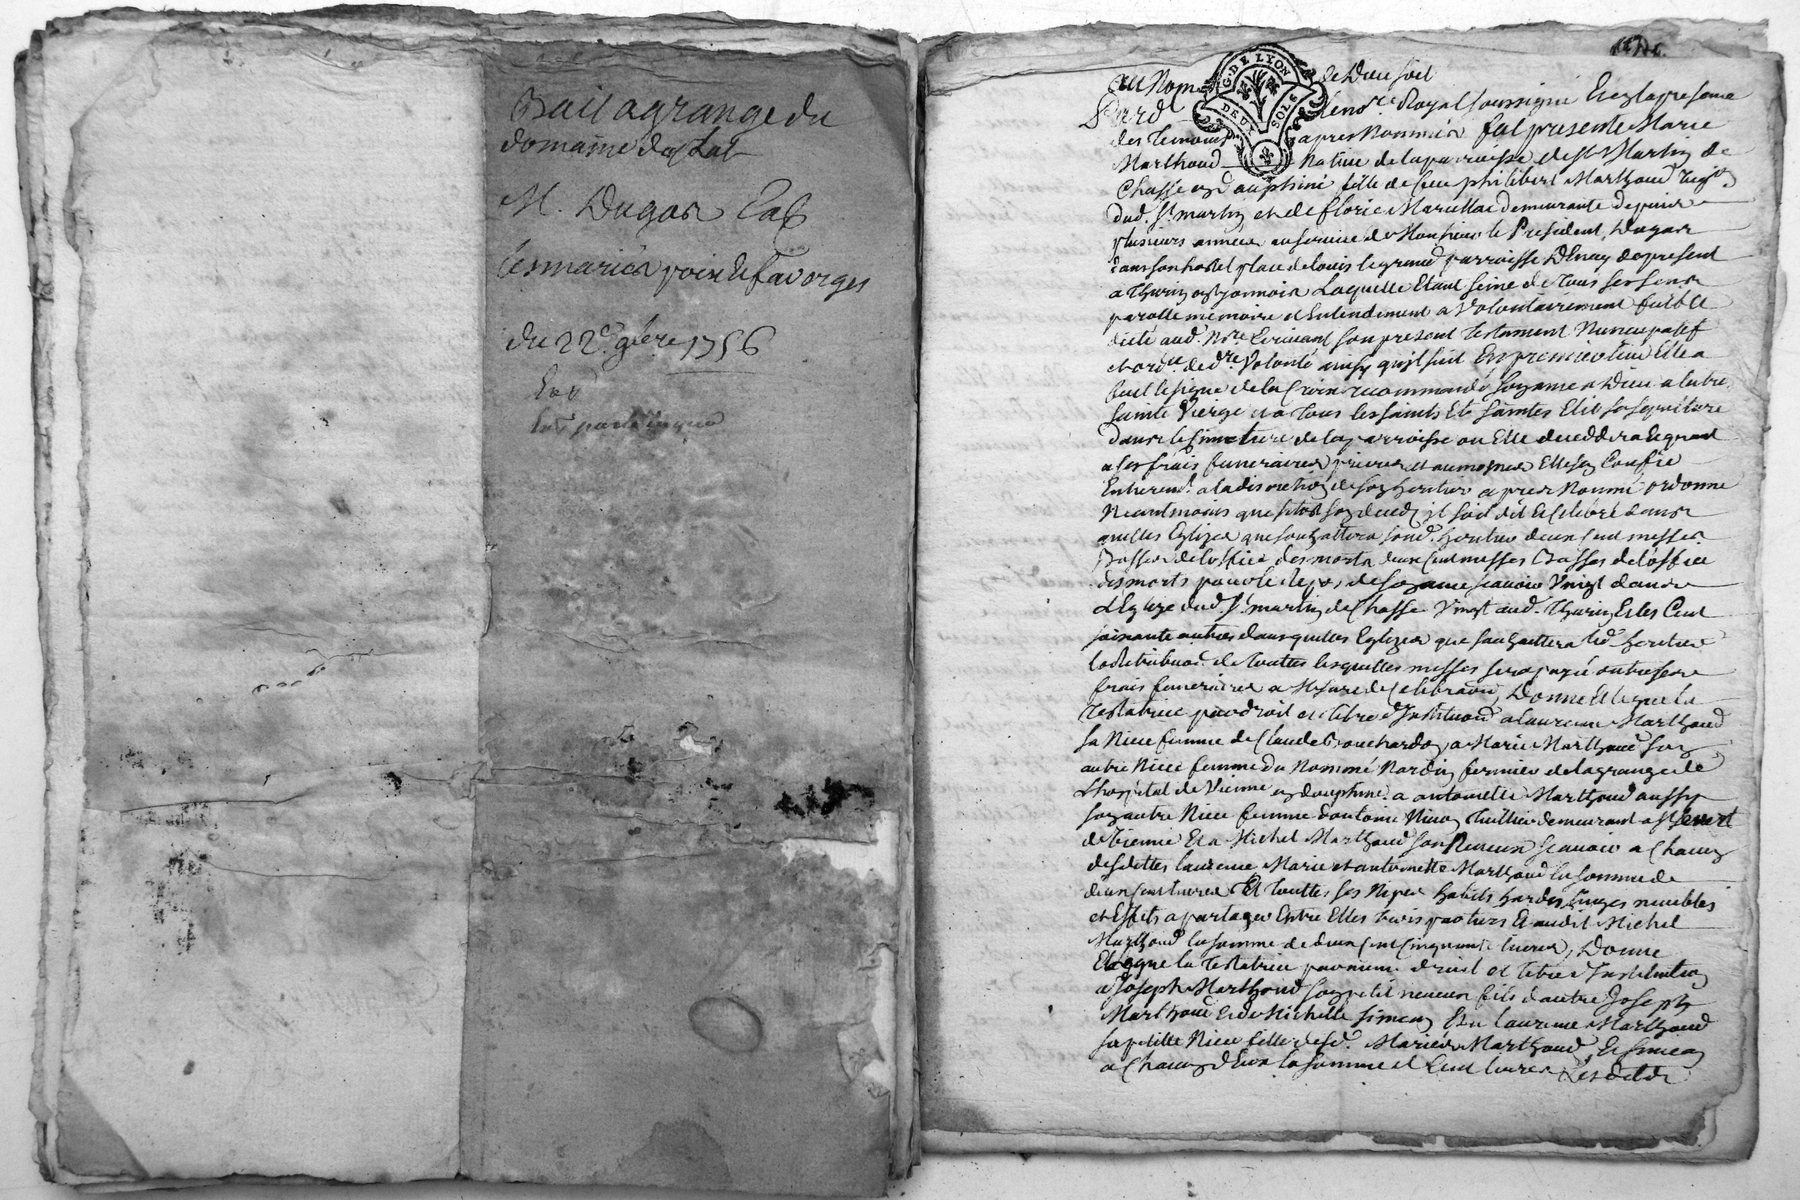 Bail a grange du
domaine du
M. Dugas
les mariés poix de favorges
du 22e 9bre 1756
au Nom de Dieu soit
G. DE LYON
DEUX SOLS
Royal soussigné Et en la presence
des Temoins apres Nommés fut presente Marie
Marthoud Native de la parroisse de St Martin de
Chasse en dauphiné fille de feu philibert Marthoud
dud. St martin et de florie demeurante depuis
plusieurs années au service de Monsieur le President Dugas
dans son hostel place de Louis le grand parroisse D'Enay de present
a Thurin en Lyonnois Laquelle Etant seine de Tous ses sens
parolle memoire et Entendement a Volontairement fait et
dicté aud. Nore Ecrivant son present Testament Nuncupatif
et ordce de dre Volonté ainsy qu'il suit En premier lieu Elle a
fait le signe de la Croix recommandé son ame a Dieu a la tres
sainte Vierge et a Tous les saints Et saintes Elit sa sepulture
dans le simetiere de la parroisse ou Elle deceddera Et quant
a ses frais funeraires prieres et aumosnes Elle s'en Confie
Entieremt. a la discretion de son heritier apres Nommé ordonne
Neantmoins que sitost son deced il soit dit Et Celebré dans
quelles Eglizes que souhaittera sond. heritier deux cent messes
Basses de l'office des morts deux Cent messes Basses de l'office
des morts pour le repos de son ame scavoir Vingt dans
L'Eglize dud. St martin de Chasse Vingt aud. Thurin Et les Cent
soixante autres dans quelles Eglizes que souhaittera led. heritier
la Retribuon. de Touttes lesquelles messes sera payé outre ses
frais funeraires a Mesure de Celebraon. Donne Et legue la
Testatrice par droit et titre d'Instituon. a laurence Marthoud
sa Niece femme de Claude Bouchardon, a Marie Marthoud son
autre Niece femme du Nommé Nardin fermier de la grange de
L'hospital de Vienne en dauphiné a antoinette Marthoud aussy
son autre Niece femme d'antoine demeurant a St Severt
de Vienne Et a Michel Marthoud son Neveux scavoir a Chacune
desdittes laurence Marie et antoinette Marthoud la somme de
deux cent livres Et Touttes ses Nipes habits hardes linges meubles
et Effets a partager Entre Elles trois par tiers Et audit Michel
Marthoud la somme de deux Cent Cinquante livres, Donne
Et legue la Testatrice par meme droit et titre d'Institution
a Joseph Marthoud son petit neveux fils d'autre Joseph
Marthoud Et de Michelle Simean Et a laurence Marthoud
sa petitte Niece fille desd. Mariés Marthoud, Et Simean
a Chacun d'Eux la somme de Cent livres